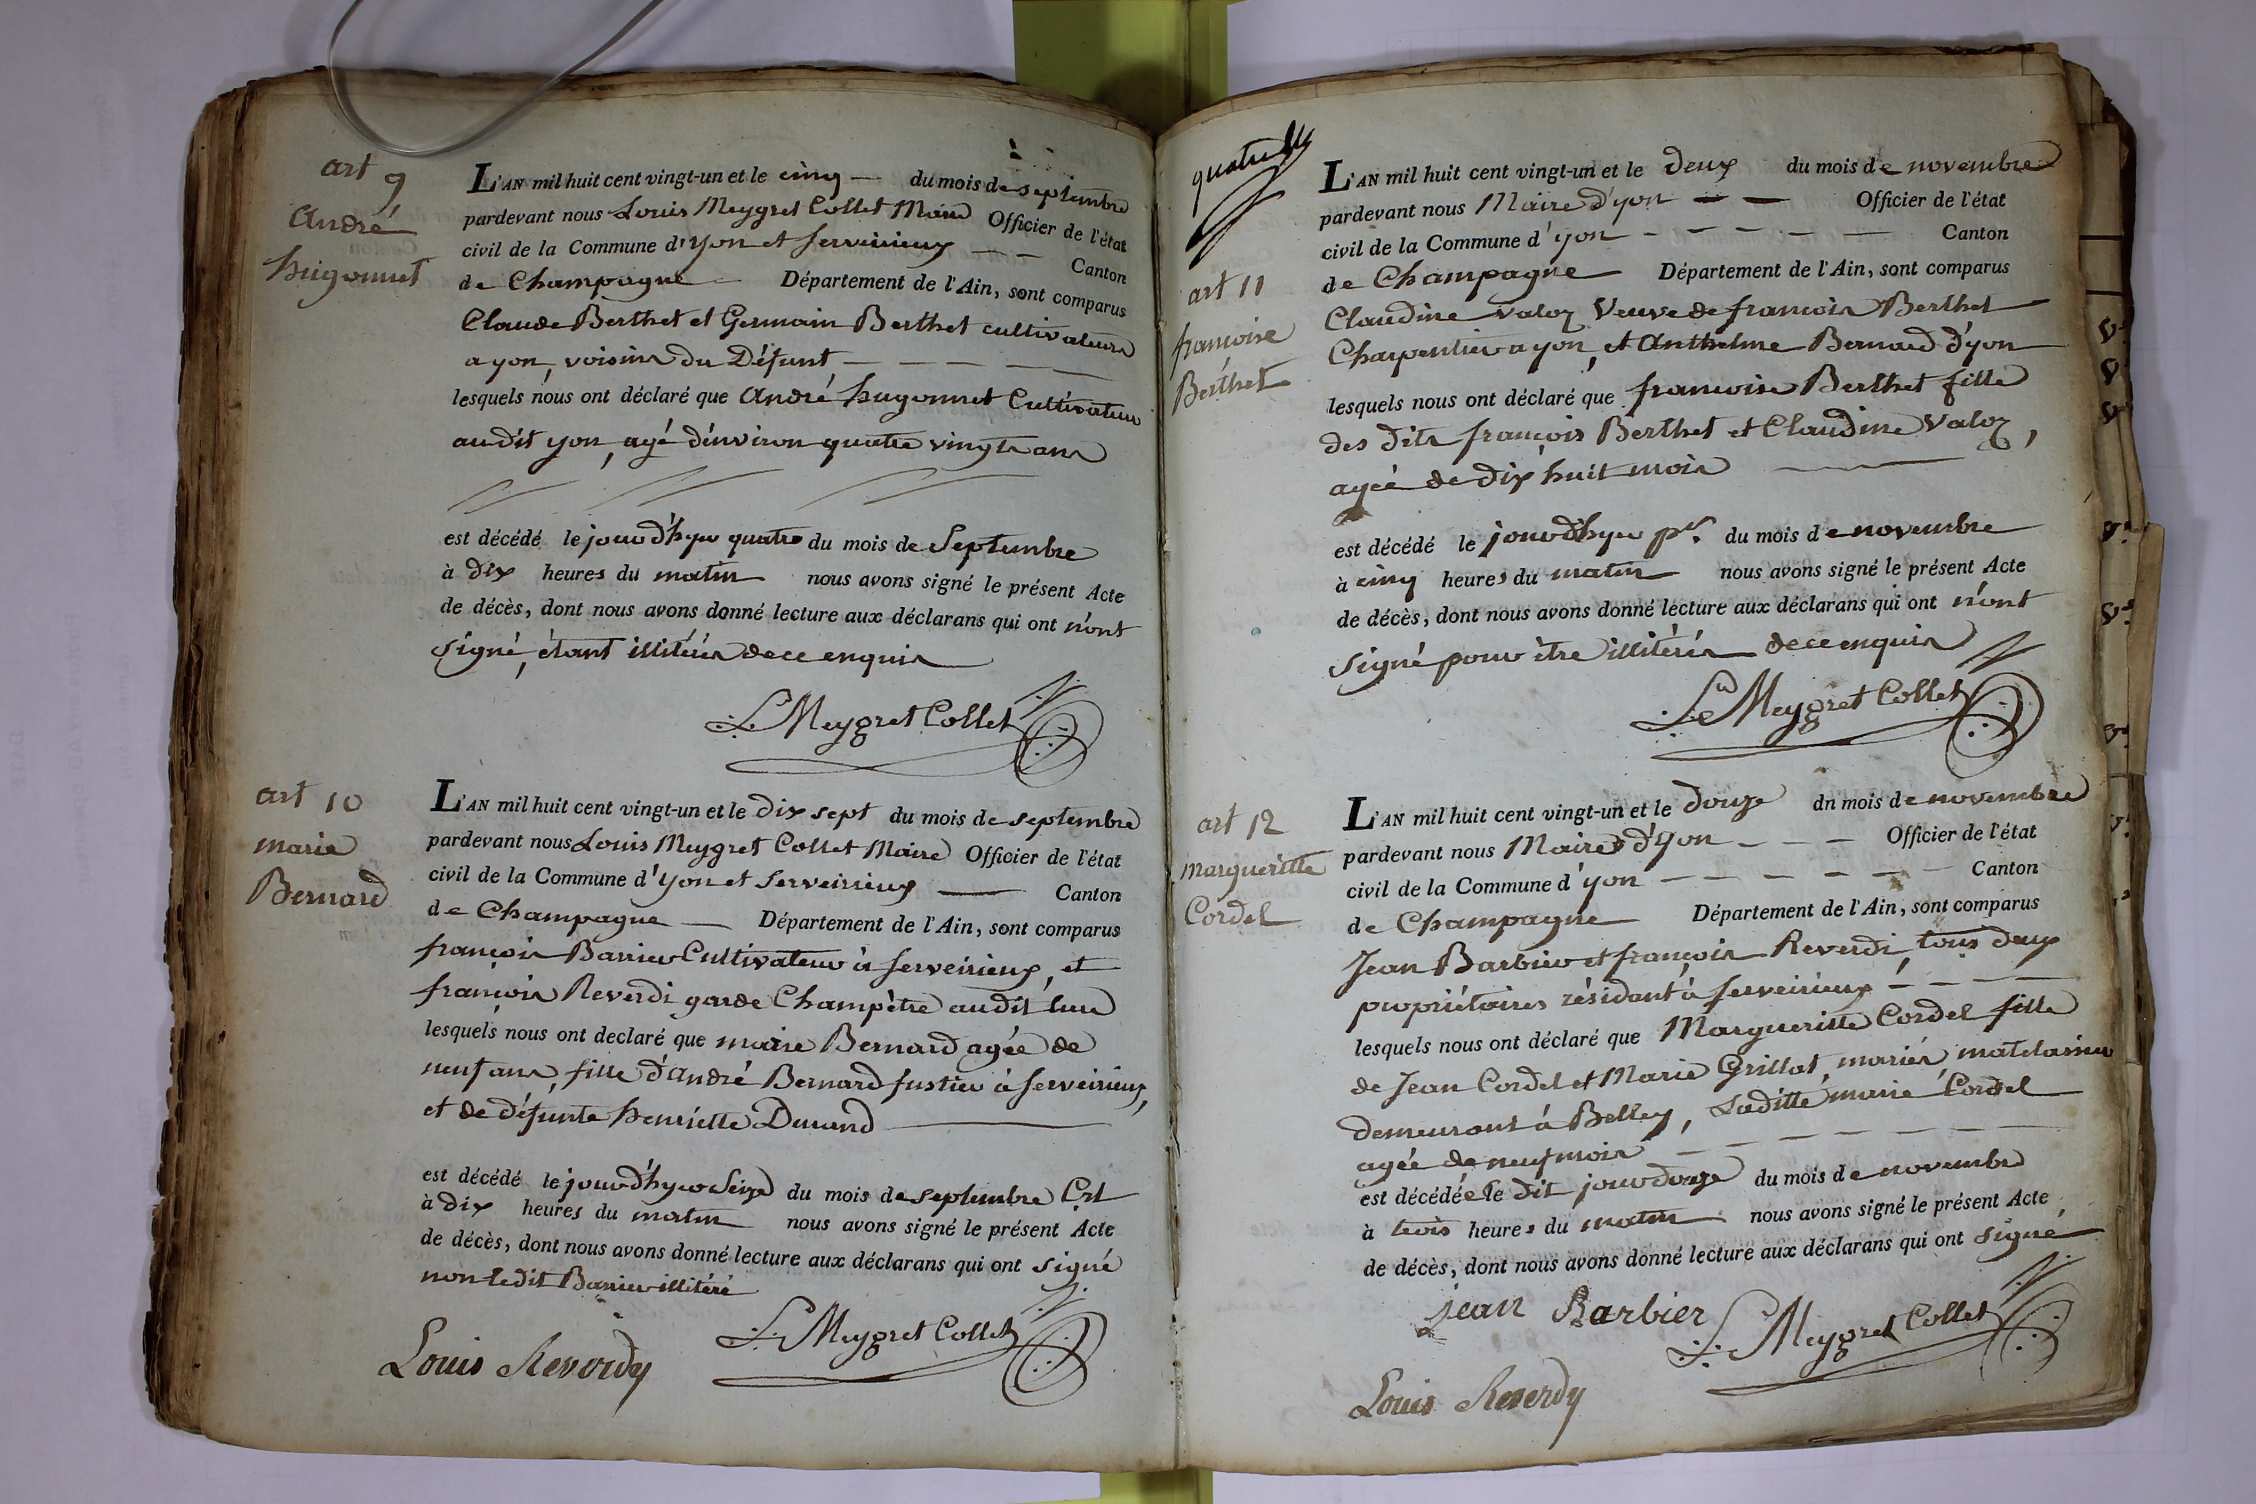 art 9
André
hugonnet
L'AN mil huit cent vingt-un et le cinq — du mois de septembre
pardevant nous Louis Meygret Collet Maire Officier de l'état
civil de la Commune d'yon et Serveirieux — — Canton
de Champagne — Département de l'Ain, sont comparus
Claude Berthet et Germain Berthet cultivateurs
a yon, voisins du Défunt — — — —
lesquels nous ont déclaré que André hugonnet Cultivateur
audit yon, agé d'environ quatre vingts ans
est décédé le jour d'hyer quatre du mois de Septembre
à dix heures du matin nous avons signé le présent Acte
de décès, dont nous avons donné lecture aux déclarans qui ont n'ont
signé, étant illitérés de ce enquis
L. Meygret Collet
art 10
marie
Bernard
L'AN mil huit cent vingt-un et le dix sept du mois de septembre
pardevant nous Louis Meygret Collet Maire Officier de l'état
civil de la Commune d'yon et Serveirieux — Canton
de Champagne — Département de l'Ain, sont comparus
françois Barrier Cultivateur à Serveirieux, et
françois Reverdi garde Champêtre audit lieu
lesquels nous ont declaré que marie Bernard agée de
neuf ans, fille d'andré Bernard fustier à Serveirieux,
et de défunte henriette Durand —
est décédé le jour d'hyer Seize du mois de septembre Crt
à dix heures du matin nous avons signé le présent Acte
de décès, dont nous avons donné lecture aux déclarans qui ont signé
non ledit Barrier illitéré
Louis Reverdy L. Meygret Collet
quatre
art 11
francoise
Berthet
L'AN mil huit cent vingt-un et le deux du mois de novembre
pardevant nous Maire d'yon — — Officier de l'état
civil de la Commune d'yon — — — — — Canton
de Champagne Département de l'Ain, sont comparus
Claudine valoz Veuve de francois Berthet
Charpentier a yon, et Anthelme Bernard d'yon
lesquels nous ont déclaré que francoise Berthet fille
des dits françois Berthet et Claudine Valoz,
agée de dix huit mois —
est décédé le jour d'hyer pr. du mois de novembre
à cinq heures du matin nous avons signé le présent Acte
de décès, dont nous avons donné lecture aux déclarans qui ont n'ont
signé pour être illitérés de ce enquis
Ls Meygret Collet
art 12
margueritte
Cordel
L'AN mil huit cent vingt-un et le douze dn mois de novembre
pardevant nous Maire d'Yon — — — Officier de l'état
civil de la Commune d'yon — — — — — — Canton
de Champagne Département de l'Ain, sont comparus
Jean Barbier et françois Reverdi, tous deux
propriétaires résidant à Serveirieux — — —
lesquels nous ont déclaré que Margueritte Cordel fille
de Jean Cordel et Marie Grillot, mariés, matelassier
demeurant à Belley, Laditte marie Cordel
agée de neuf mois — — — — — —
est décédée le dit jour douze du mois de novembre
à trois heures du matin nous avons signé le présent Acte
de décès, dont nous avons donné lecture aux déclarans qui ont signé
jean Barbier L. Meygret Collet
Louis Reverdy